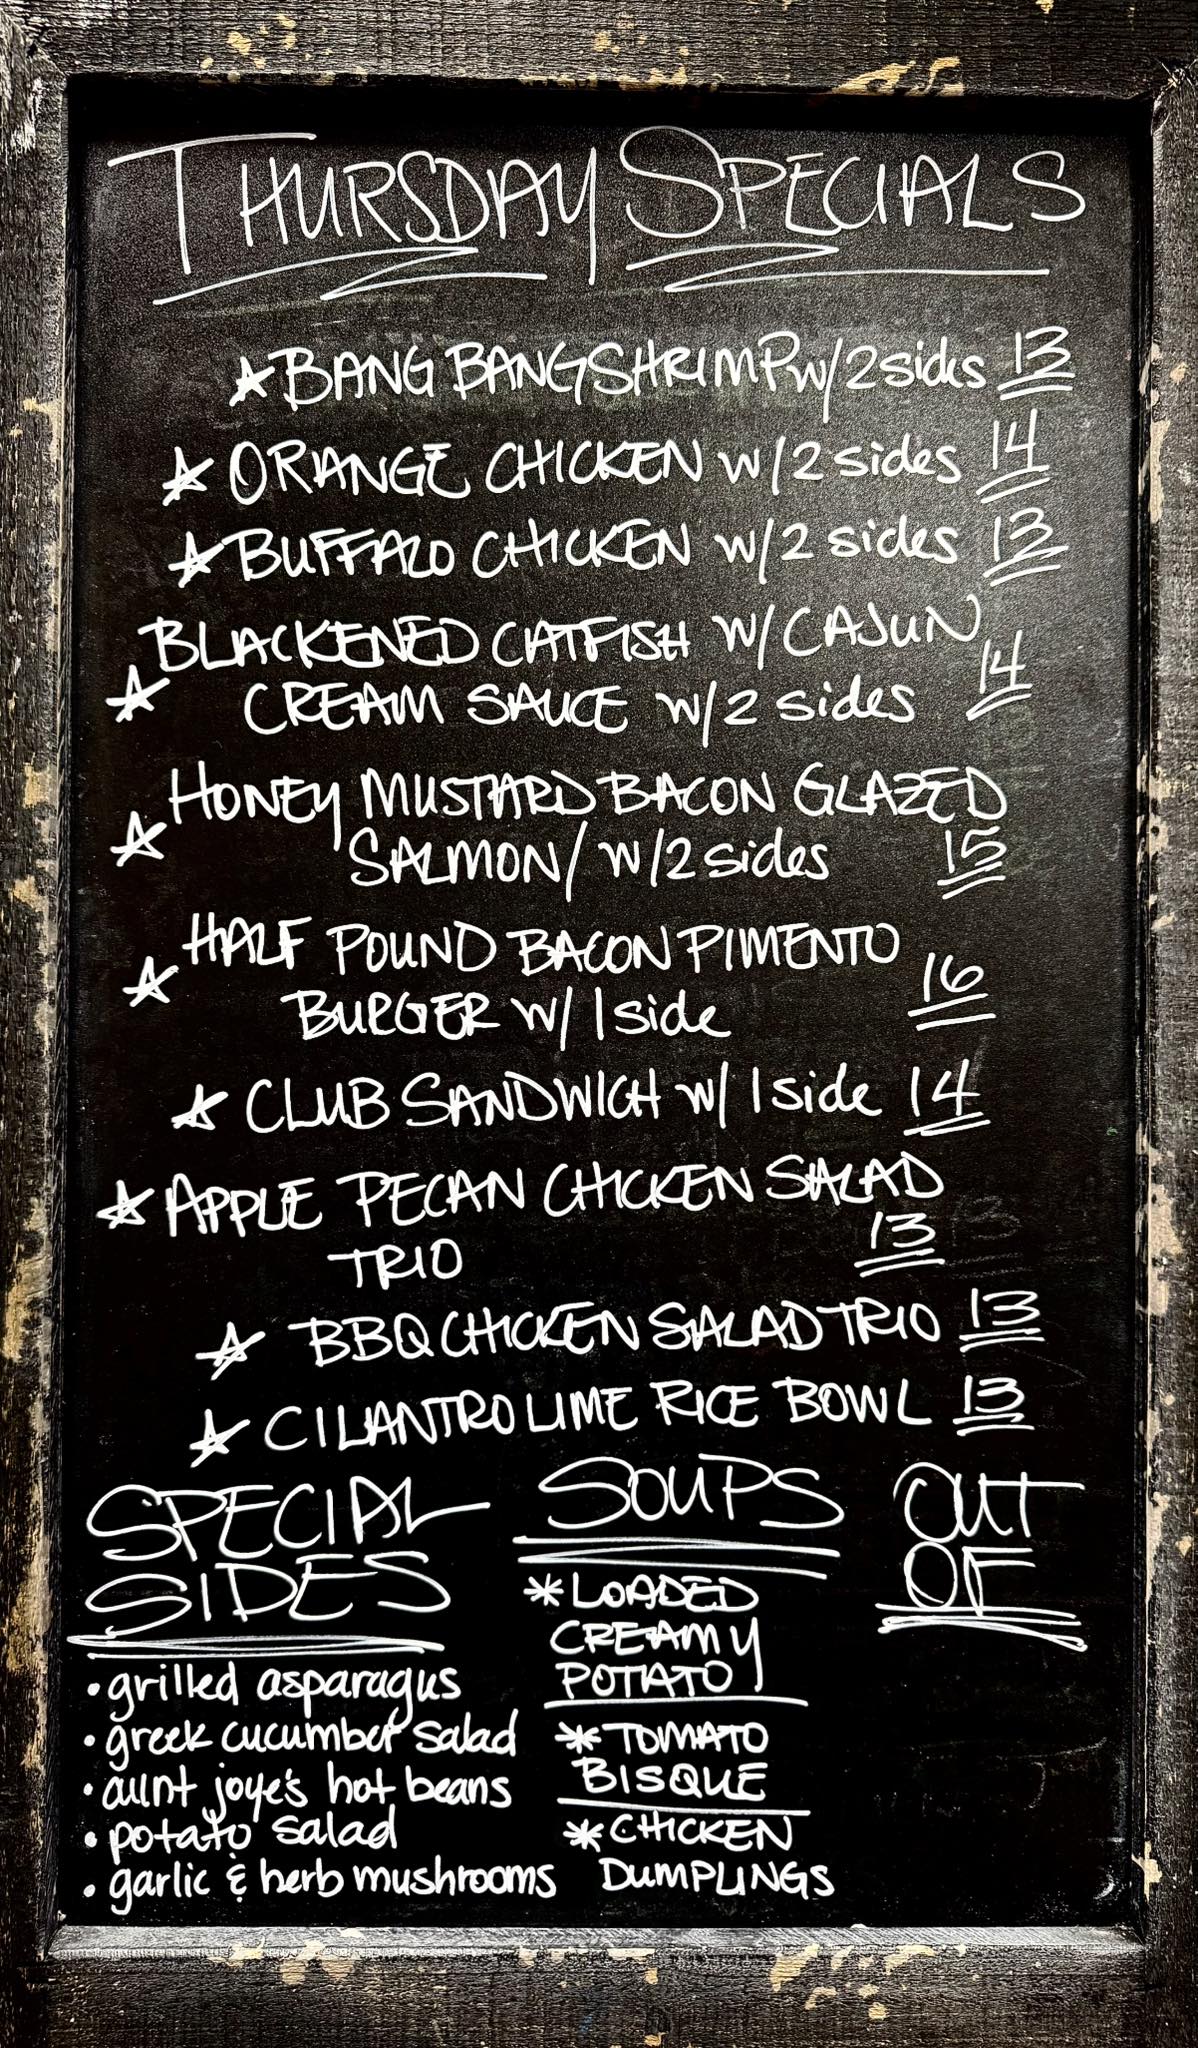 THURSDAY SPECIALS
☆ BANG BANG SHRIMP w/ 2 sides 13
☆ ORANGE CHICKEN w/ 2 sides 14
☆ BUFFALO CHICKEN w/ 2 sides 13
BLACKENED CATFISH w/ CAJUN
☆ CREAM SAUCE w/ 2 sides 14
HONEY MUSTARD BACON GLAZED
☆ SALMON/ w/ 2 sides 15
HALF POUND BACON PIMENTO
☆ BURGER w/ 1 side 16
☆ CLUB SANDWICH w/ 1 side 14
☆ APPLE PECAN CHICKEN SALAD
TRIO 13
☆ BBQ CHICKEN SALAD TRIO 13
☆ CILANTRO LIME RICE BOWL 13
SPECIAL
SIDES
• grilled asparagus
• greek cucumber salad
• aunt joye's hot beans
• potato salad
• garlic & herb mushrooms
SOUPS
* LOADED
CREAMY
POTATO
* TOMATO
BISQUE
* CHICKEN
DUMPLINGS
OUT
OF